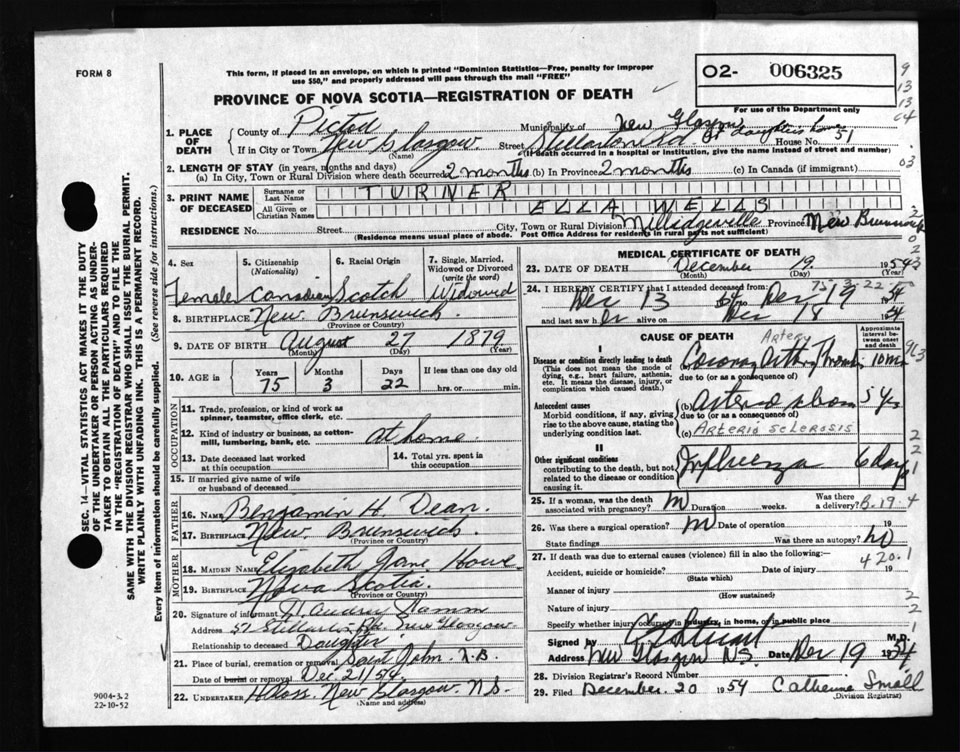 FORM 8
This form, if placed in an envelope, on which is printed "Dominion Statistics—Free, penalty for improper
use $50," and properly addressed will pass through the mail "FREE"
PROVINCE OF NOVA SCOTIA—REGISTRATION OF DEATH
02- 006325
For use of the Department only
1. PLACE OF DEATH County of Pictou Municipality of New Glasgow
at daughter's home
If in City or Town New Glasgow. (Name) Street House No. 51
(If death occurred in a hospital or institution, give the name instead of street and number)
2. LENGTH OF STAY (in years, months and days)
(a) In City, Town or Rural Division where death occurred 2 months (b) In Province 2 months (c) In Canada (if immigrant)
3. PRINT NAME OF DECEASED Surname or Last Name TURNER
All Given or Christian Names ELLA WELLS
RESIDENCE No. Street City, Town or Rural Division Millidgeville Province New Brunswick
(Residence means usual place of abode. Post Office Address for residents in rural parts not sufficient)
4. Sex 5. Citizenship (Nationality) 6. Racial Origin 7. Single, Married, Widowed or Divorced (write the word)
Female Canadian Scotch Widowed
8. BIRTHPLACE New Brunswick
(Province or Country)
9. DATE OF BIRTH August 27 1879
(Month) (Day) (Year)
10. AGE in Years Months Days If less than one day old
75 3 22 hrs. or min.
OCCUPATION
11. Trade, profession, or kind of work as spinner, teamster, office clerk, etc.
12. Kind of industry or business, as cotton-mill, lumbering, bank, etc. at home.
13. Date deceased last worked at this occupation 14. Total yrs. spent in this occupation
15. If married give name of wife or husband of deceased
FATHER
16. Name Benjamin H. Dean.
17. Birthplace New Brunswick
(Province or Country)
MOTHER
18. Maiden Name Elizabeth Jane Howe
19. Birthplace Nova Scotia.
(Province or Country)
20. Signature of informant Audrey Hamm
Address 51 New Glasgow.
Relationship to deceased Daughter
21. Place of burial, cremation or removal Saint John. N.B.
Date of burial or removal Dec. 21/54.
22. Undertaker New Glasgow. N.S.
(Name and address)
MEDICAL CERTIFICATE OF DEATH
23. DATE OF DEATH December 19 1954
(Month) (Day) (Year)
75-3-22
24. I HEREBY CERTIFY that I attended deceased from:
Dec 13 1954 to Dec 19 1954
and last saw her alive on Dec 18 1954
CAUSE OF DEATH
Approximate interval between onset and death
I
Disease or condition directly leading to death
(This does not mean the mode of dying, e.g., heart failure, asthenia, etc. It means the disease, injury, or complication which caused death.)
Artery
Coronary Artery Thromb. 10 min
due to (or as a consequence of)
Antecedent causes
Morbid conditions, if any, giving rise to the above cause, stating the underlying condition last.
(b) 5 yrs
due to (or as a consequence of)
(c) ARTERIO SCLEROSIS
II
Other significant conditions
contributing to the death, but not related to the disease or condition causing it.
Influenza 6 days
25. If a woman, was the death associated with pregnancy? Duration weeks. Was there a delivery?
26. Was there a surgical operation? Date of operation 19
State findings Was there an autopsy? no
27. If death was due to external causes (violence) fill in also the following:—
420.1
Accident, suicide or homicide? Date of injury 19
(State which)
Manner of injury
(How sustained)
Nature of injury
Specify whether injury occurred in industry, in home, or in public place
Signed by M.D.
Address New Glasgow NS. Date Dec 19 1954
28. Division Registrar's Record Number
29. Filed December. 20 1954 Catherine Small
(Division Registrar)
SEC. 14—VITAL STATISTICS ACT MAKES IT THE DUTY
OF THE UNDERTAKER OR PERSON ACTING AS UNDER-
TAKER TO OBTAIN ALL THE PARTICULARS REQUIRED
IN THE "REGISTRATION OF DEATH" AND TO FILE THE
SAME WITH THE DIVISION REGISTRAR WHO SHALL ISSUE THE BURIAL PERMIT.
WRITE PLAINLY WITH UNFADING INK. THIS IS A PERMANENT RECORD.
Every item of information should be carefully supplied. (See reverse side for instructions.)
9004-3.2
22-10-52